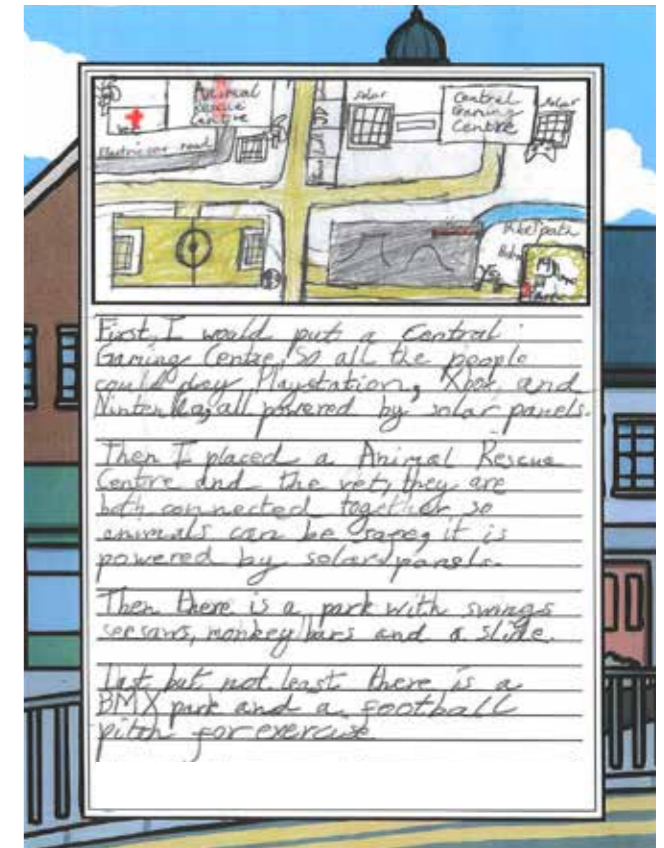 Animal
Rescue
Centre
Vet
Electric car road
Solar
Central
Gaming
Centre
Solar
First, I would put a Central
Gaming Centre, So all the people
could play Playstation, Xbox and
Nintendo, all powered by solar panels.
Then I placed a Animal Rescue
Centre and the vet, they are
both connected together so
animals can be safe, it is
powered by solar panels.
Then there is a park with swings
seesaws, monkey bars and a slide.
Last but not least there is a
BMX park and a football
pitch for exercise